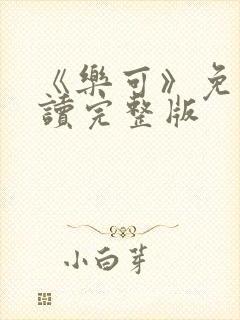 《樂可》免
讀完整版
小白芽